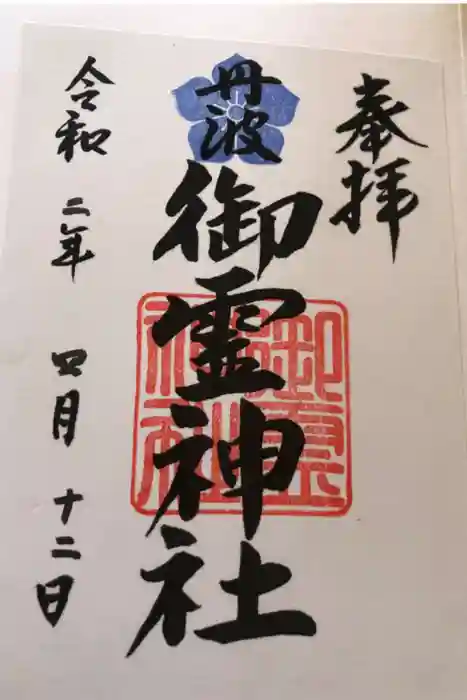 奉拝
丹波
御霊神社
御霊
神社
令和二年四月十二日